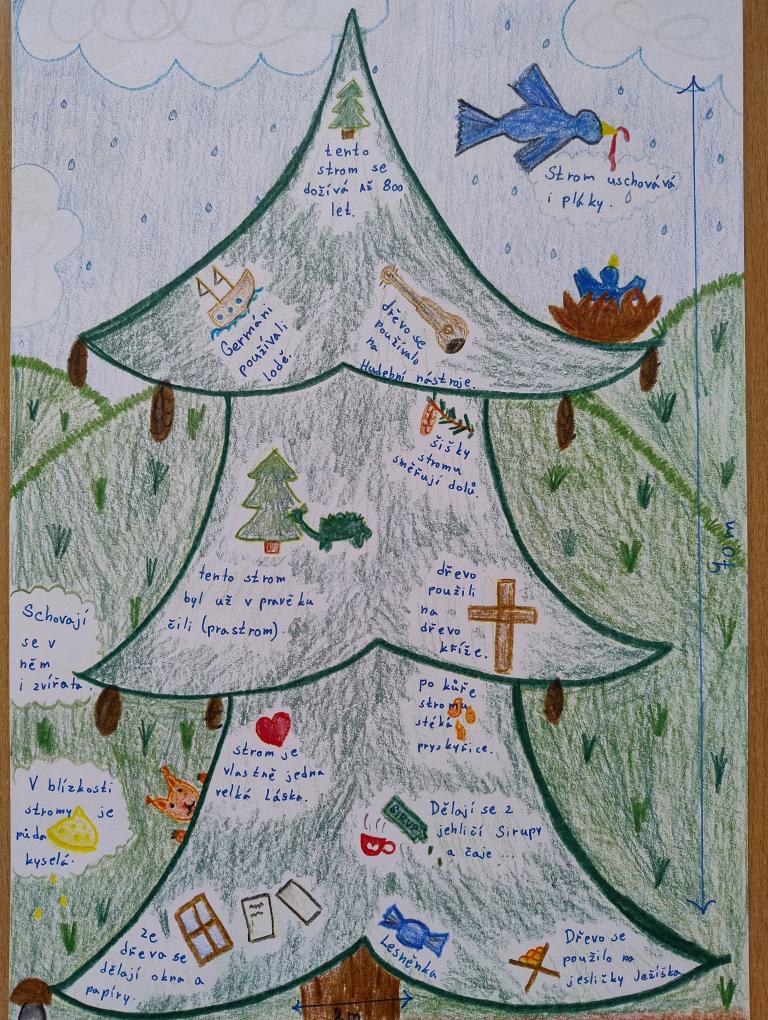 tento
strom se
dožívá Až 800
let.
Strom uschovává
i pláky.
Germáni
používali
lodě.
dřevo se
používalo
na
Hudební nástroje.
šišky
stromu
směřují dolů.
40 m
tento strom
byl už v pravěku
čili (prastrom).
dřevo
použili
na
dřevo
kříže.
Schovají
se v
něm
i zvířata.
po kůře
stromu
stéká
pryskyřice.
strom je
vlastně jedna
velká Láska.
V blízkosti
stromy je
půda
kyselá.
SIRUP
Dělají se z
jehličí Sirupy
a čaje ...
ze
dřeva se
dělají okna a
papíry.
Lesněnka
Dřevo se
použilo na
jesličky Ježíška.
2 m